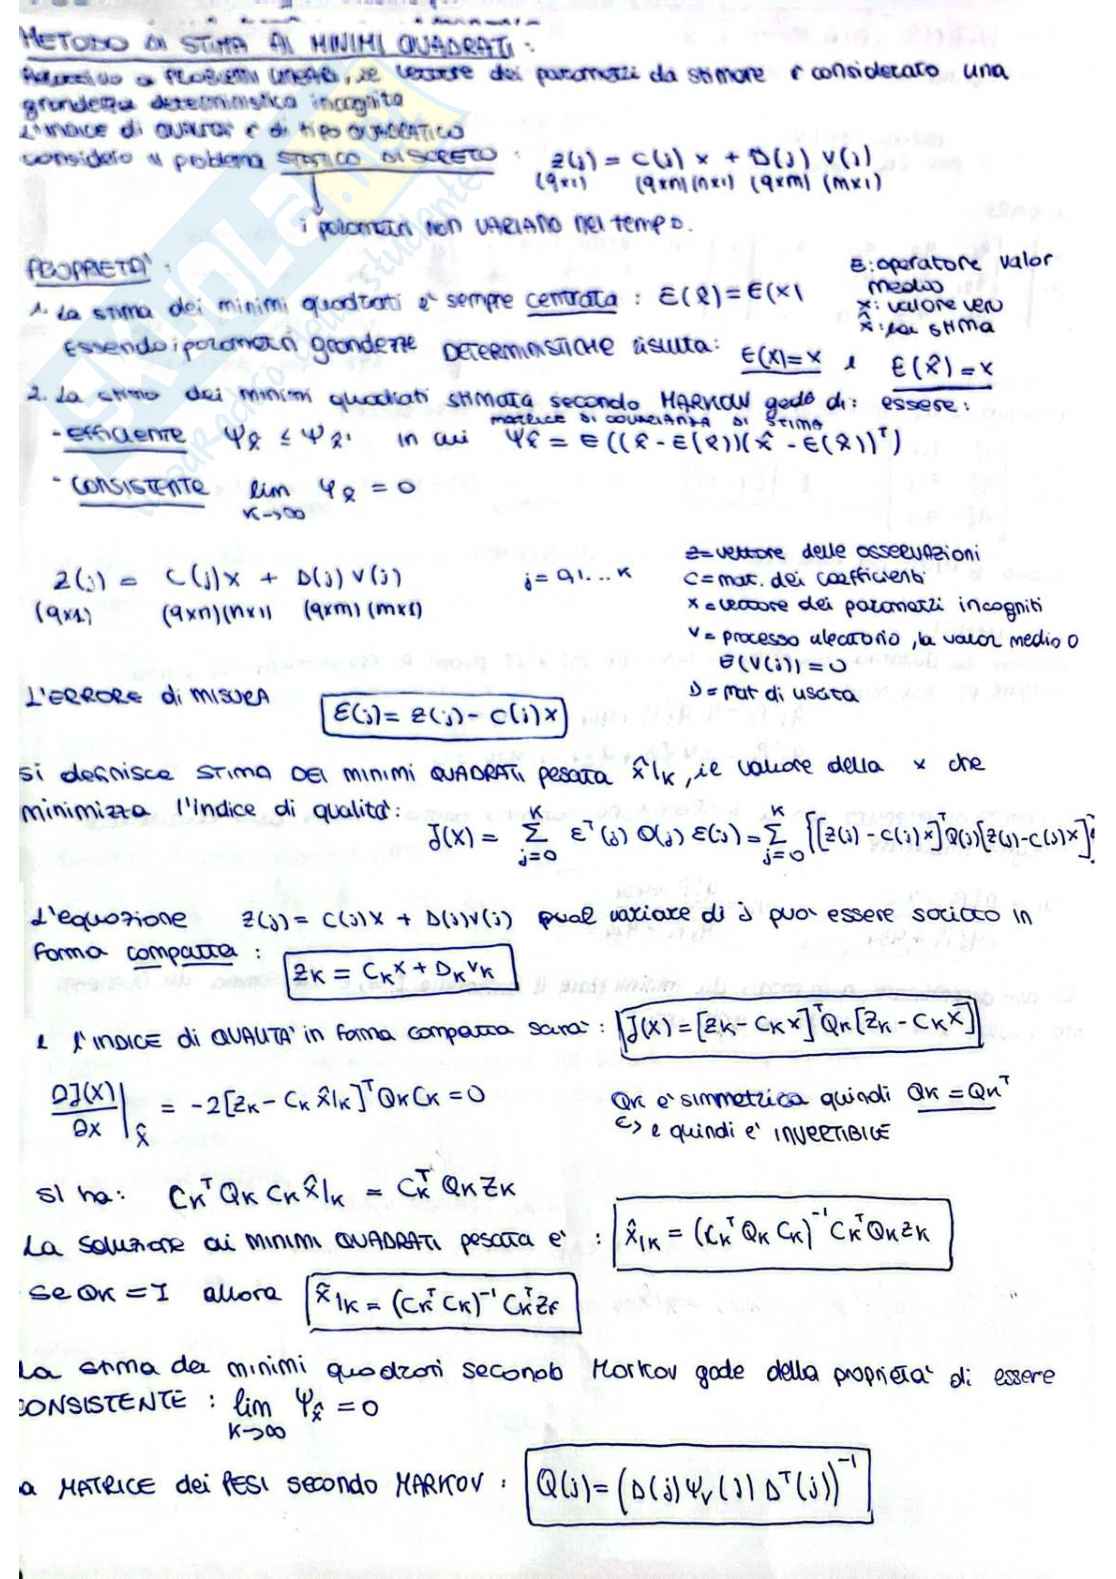 METODO DI STIMA AI MINIMI QUADRATI :
a PROBLEMI LINEARI, se vettore dei parametri da stimare è considerato una
grandezza deterministica incognita
L'INDICE di QUALITA' è di tipo QUADRATICO
considero il problema STATICO DISCRETO : z(j) = C(j) x + D(j) v(j)
(q×1) (q×n)(n×1) (q×m) (m×1)
i parametri non VARIANO nel tempo.
PROPRIETA' :
E: operatore valor
medio
x: valore vero
x̂: la stima
1. La stima dei minimi quadrati e' sempre centrata : E(x̂) = E(x)
Essendo i parametri grandezze DETERMINISTICHE risulta: E(x)=x e E(x̂)=x
2. La stima dei minimi quadrati stimata secondo MARKOV gode di: essere:
MATRICE DI COVARIANZA DI STIMA
- efficiente Ψx̂ ≤ Ψx̂' in cui Ψx̂ = E((x̂ - E(x̂))(x̂ - E(x̂))ᵀ)
- CONSISTENTE lim Ψx̂ = 0
K→∞
z(j) = C(j)x + D(j)v(j) j = 0,1...K
(q×1) (q×n)(n×1) (q×m)(m×1)
z=vettore delle osservazioni
C=mat. dei coefficienti
x=vettore dei parametri incogniti
v= processo aleatorio, la valor medio 0
E(v(j))=0
D=mat di uscita
L'ERRORE di MISURA ε(j)= z(j) - C(j)x
si definisce STIMA DEI MINIMI QUADRATI pesata x̂|K, il valore della x che
minimizza l'indice di qualità:
J(x) = Σ(j=0..K) εᵀ(j) Q(j) ε(j) = Σ(j=0..K) {[z(j) - C(j)x]ᵀQ(j)[z(j)-C(j)x]}
L'equazione z(j)= C(j)x + D(j)v(j) al variare di j puo' essere scritto in
forma compatta : zK = CKx + DKvK
e l'INDICE di QUALITA' in forma compatta sara' : J(x) = [zK - CKx]ᵀQK[zK - CKx]
∂J(x)/∂x |x̂ = -2[zK - CK x̂|K]ᵀQKCK = 0
QK e' simmetrica quindi QK = QKᵀ
↳ e quindi e' INVERTIBILE
SI ha: CKᵀ QK CK x̂|K = CKᵀ QK zK
La soluzione ai MINIMI QUADRATI pesata e' : x̂|K = (CKᵀ QK CK)⁻¹ CKᵀ QK zK
Se QK = I allora x̂|K = (CKᵀ CK)⁻¹ CKᵀ zK
La stima dei minimi quadrati secondo Markov gode della proprietà di essere
CONSISTENTE : lim Ψx̂ = 0
K→∞
a MATRICE dei PESI secondo MARKOV : Q(j) = (D(j)Ψv(j) Dᵀ(j))⁻¹